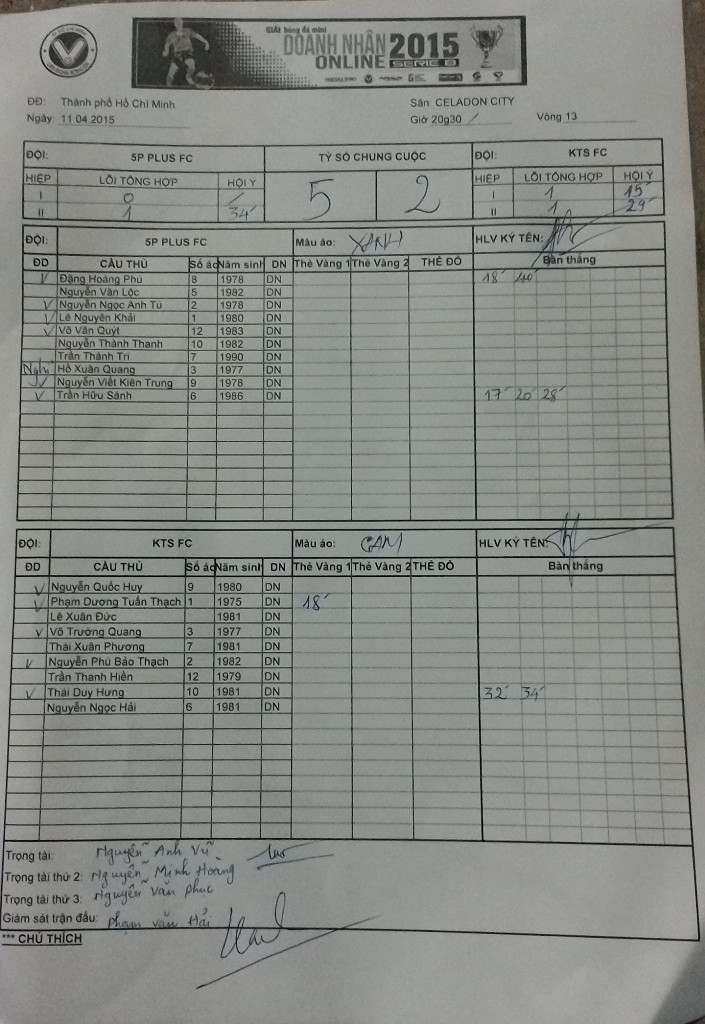 GIẢI bóng đá mini
DOANH NHÂN 2015
ONLINE SERIE B
ĐĐ: Thành phố Hồ Chí Minh Sân: CELADON CITY
Ngày: 11.04.2015 Giờ 20g30 Vòng 13
ĐỘI: 5P PLUS FC TỶ SỐ CHUNG CUỘC ĐỘI: KTS FC
HIỆP LỖI TỔNG HỢP HỘI Ý 5 2 HIỆP LỖI TỔNG HỢP HỘI Ý
I 0 / I 1 15'
II 1 34' II 1 29'
ĐỘI: 5P PLUS FC Màu áo: XANH HLV KÝ TÊN:
ĐD CẦU THỦ Số áo Năm sinh DN Thẻ Vàng 1 Thẻ Vàng 2 THẺ ĐỎ Bàn thắng
Đặng Hoàng Phú 8 1978 DN 18' 40'
Nguyễn Văn Lộc 5 1982 DN
Nguyễn Ngọc Anh Tú 2 1978 DN
Lê Nguyên Khải 1 1980 DN
Võ Văn Quýt 12 1983 DN
Nguyễn Thành Thanh 10 1982 DN
Trần Thành Trí 7 1990 DN
Nghỉ Hồ Xuân Quang 3 1977 DN
Nguyễn Viết Kiên Trung 9 1978 DN
Trần Hữu Sánh 6 1986 DN 17' 20' 28'
ĐỘI: KTS FC Màu áo: CAM HLV KÝ TÊN:
ĐD CẦU THỦ Số áo Năm sinh DN Thẻ Vàng 1 Thẻ Vàng 2 THẺ ĐỎ Bàn thắng
Nguyễn Quốc Huy 9 1980 DN
Phạm Dương Tuấn Thạch 1 1975 DN 18'
Lê Xuân Đức 1981 DN
Võ Trường Quang 3 1977 DN
Thái Xuân Phương 7 1981 DN
Nguyễn Phú Bảo Thạch 2 1982 DN
Trần Thanh Hiền 12 1979 DN
Thái Duy Hưng 10 1981 DN 32' 34'
Nguyễn Ngọc Hải 6 1981 DN
Trọng tài: Nguyễn Anh Vũ
Trọng tài thứ 2: Nguyễn Minh Hoàng
Trọng tài thứ 3: Nguyễn Văn Phúc
Giám sát trận đấu: Phạm Văn Hải
*** CHÚ THÍCH